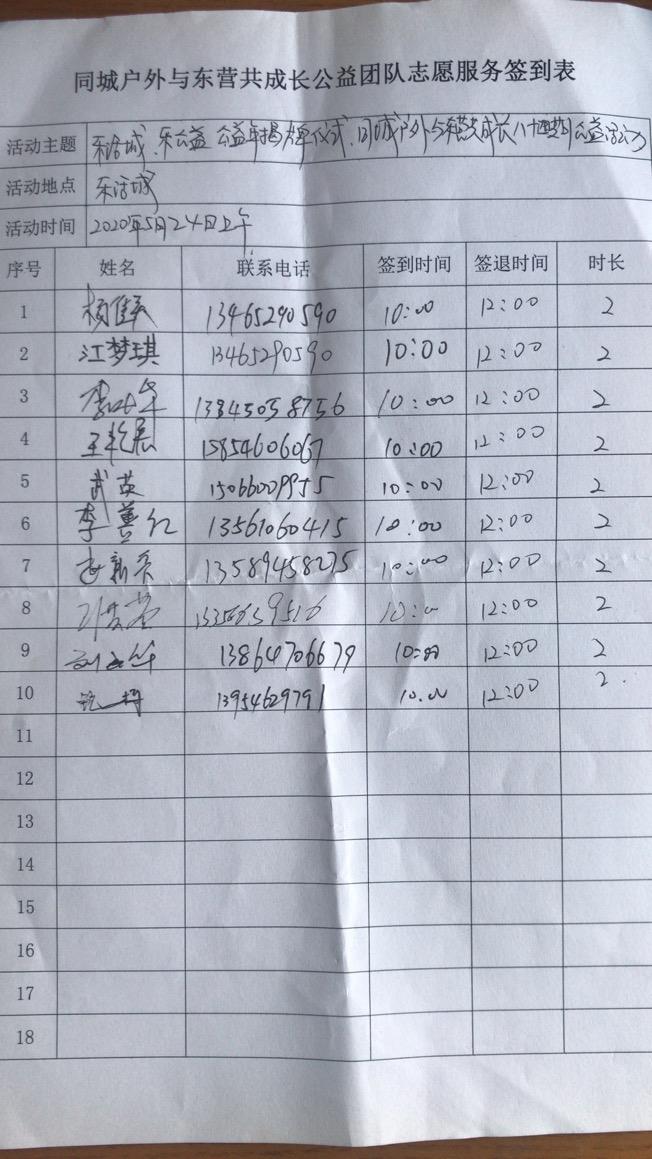 同城户外与东营共成长公益团队志愿服务签到表
活动主题 乐活城 乐公益 公益年揭牌仪式、同城户外与东营共成长八十四期公益活动
活动地点 乐活城
活动时间 2020年5月24日上午
序号 姓名 联系电话 签到时间 签退时间 时长
1 13465290590 10:00 12:00 2
2 江梦琪 13465290590 10:00 12:00 2
3 13845058756 10:00 12:00 2
4 15854606067 10:00 12:00 2
5 武英 15066009955 10:00 12:00 2
6 李善红 13561060415 10:00 12:00 2
7 13589458275 10:00 12:00 2
8 10:00 12:00 2
9 13864706679 10:00 12:00 2
10 13954629791 10.00 12:00 2.
11
12
13
14
15
16
17
18